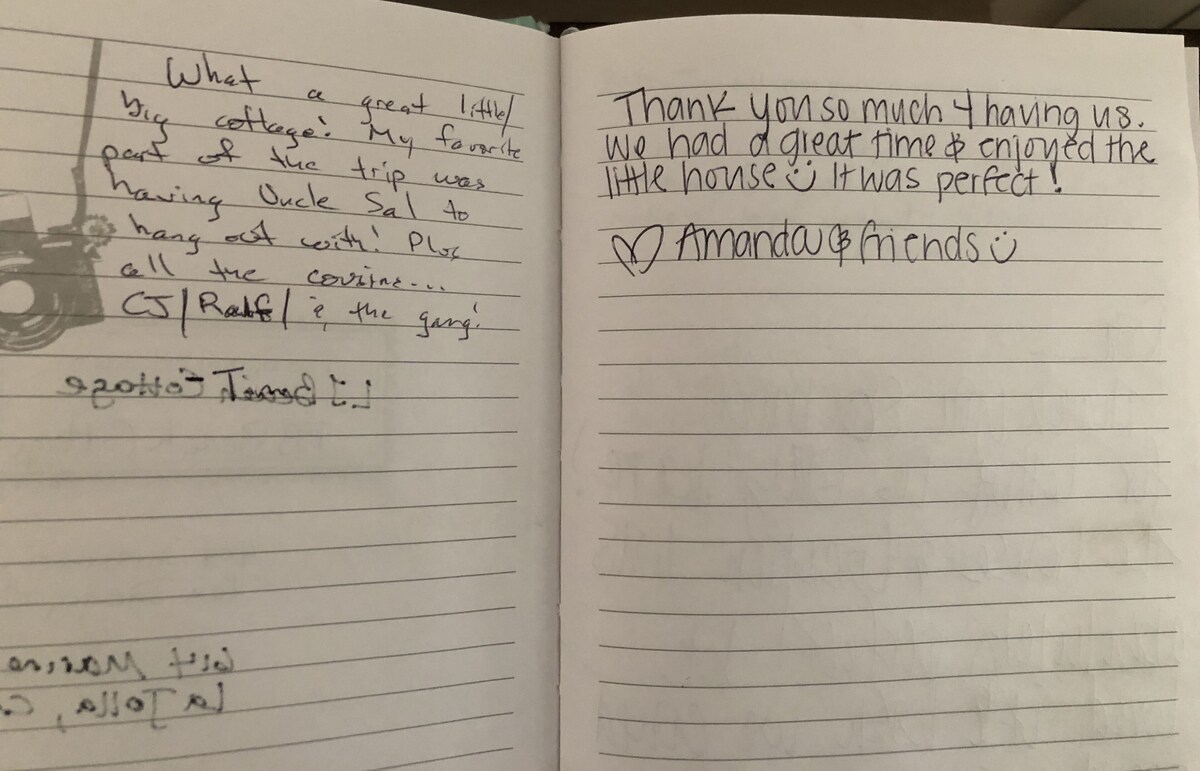 What a great little/
big cottage! My favorite
part of the trip was
having Uncle Sal to
hang out with! Plus
all the cousins...
CJ/Ralf/ & the gang!
Cottage
La Jolla, C
Thank you so much 4 having us.
We had a great time & enjoyed the
little house It was perfect!
Amanda & friends